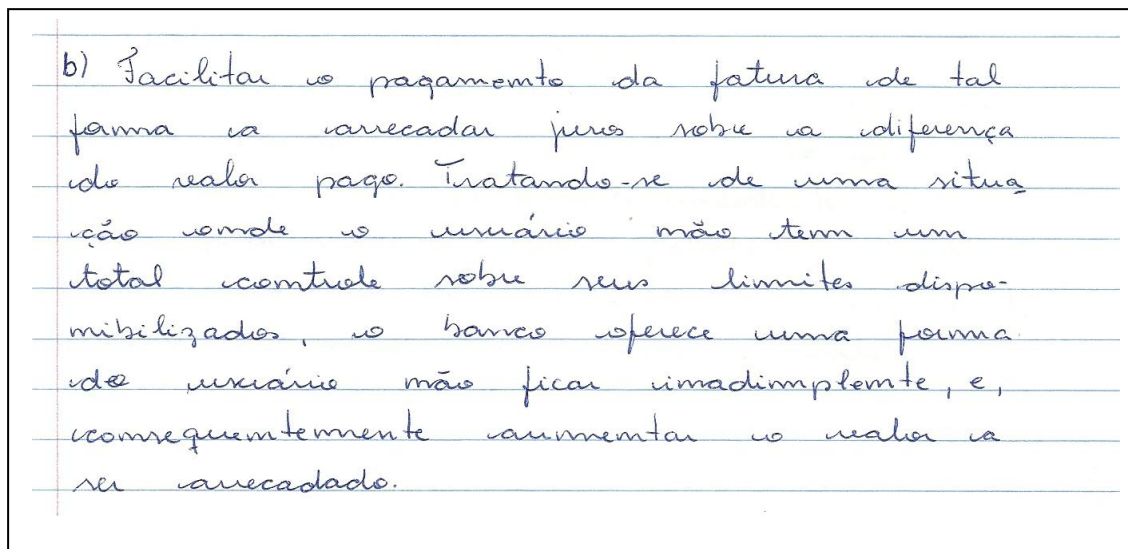 b) Facilitar o pagamento da fatura de tal
forma a arrecadar juros sobre a diferença
do valor pago. Tratando-se de uma situa
ção onde o usuário não tem um
total controle sobre seus limites dispo-
nibilizados, o banco oferece uma forma
do usuário não ficar inadimplente, e,
consequentemente aumentar o valor a
ser arrecadado.